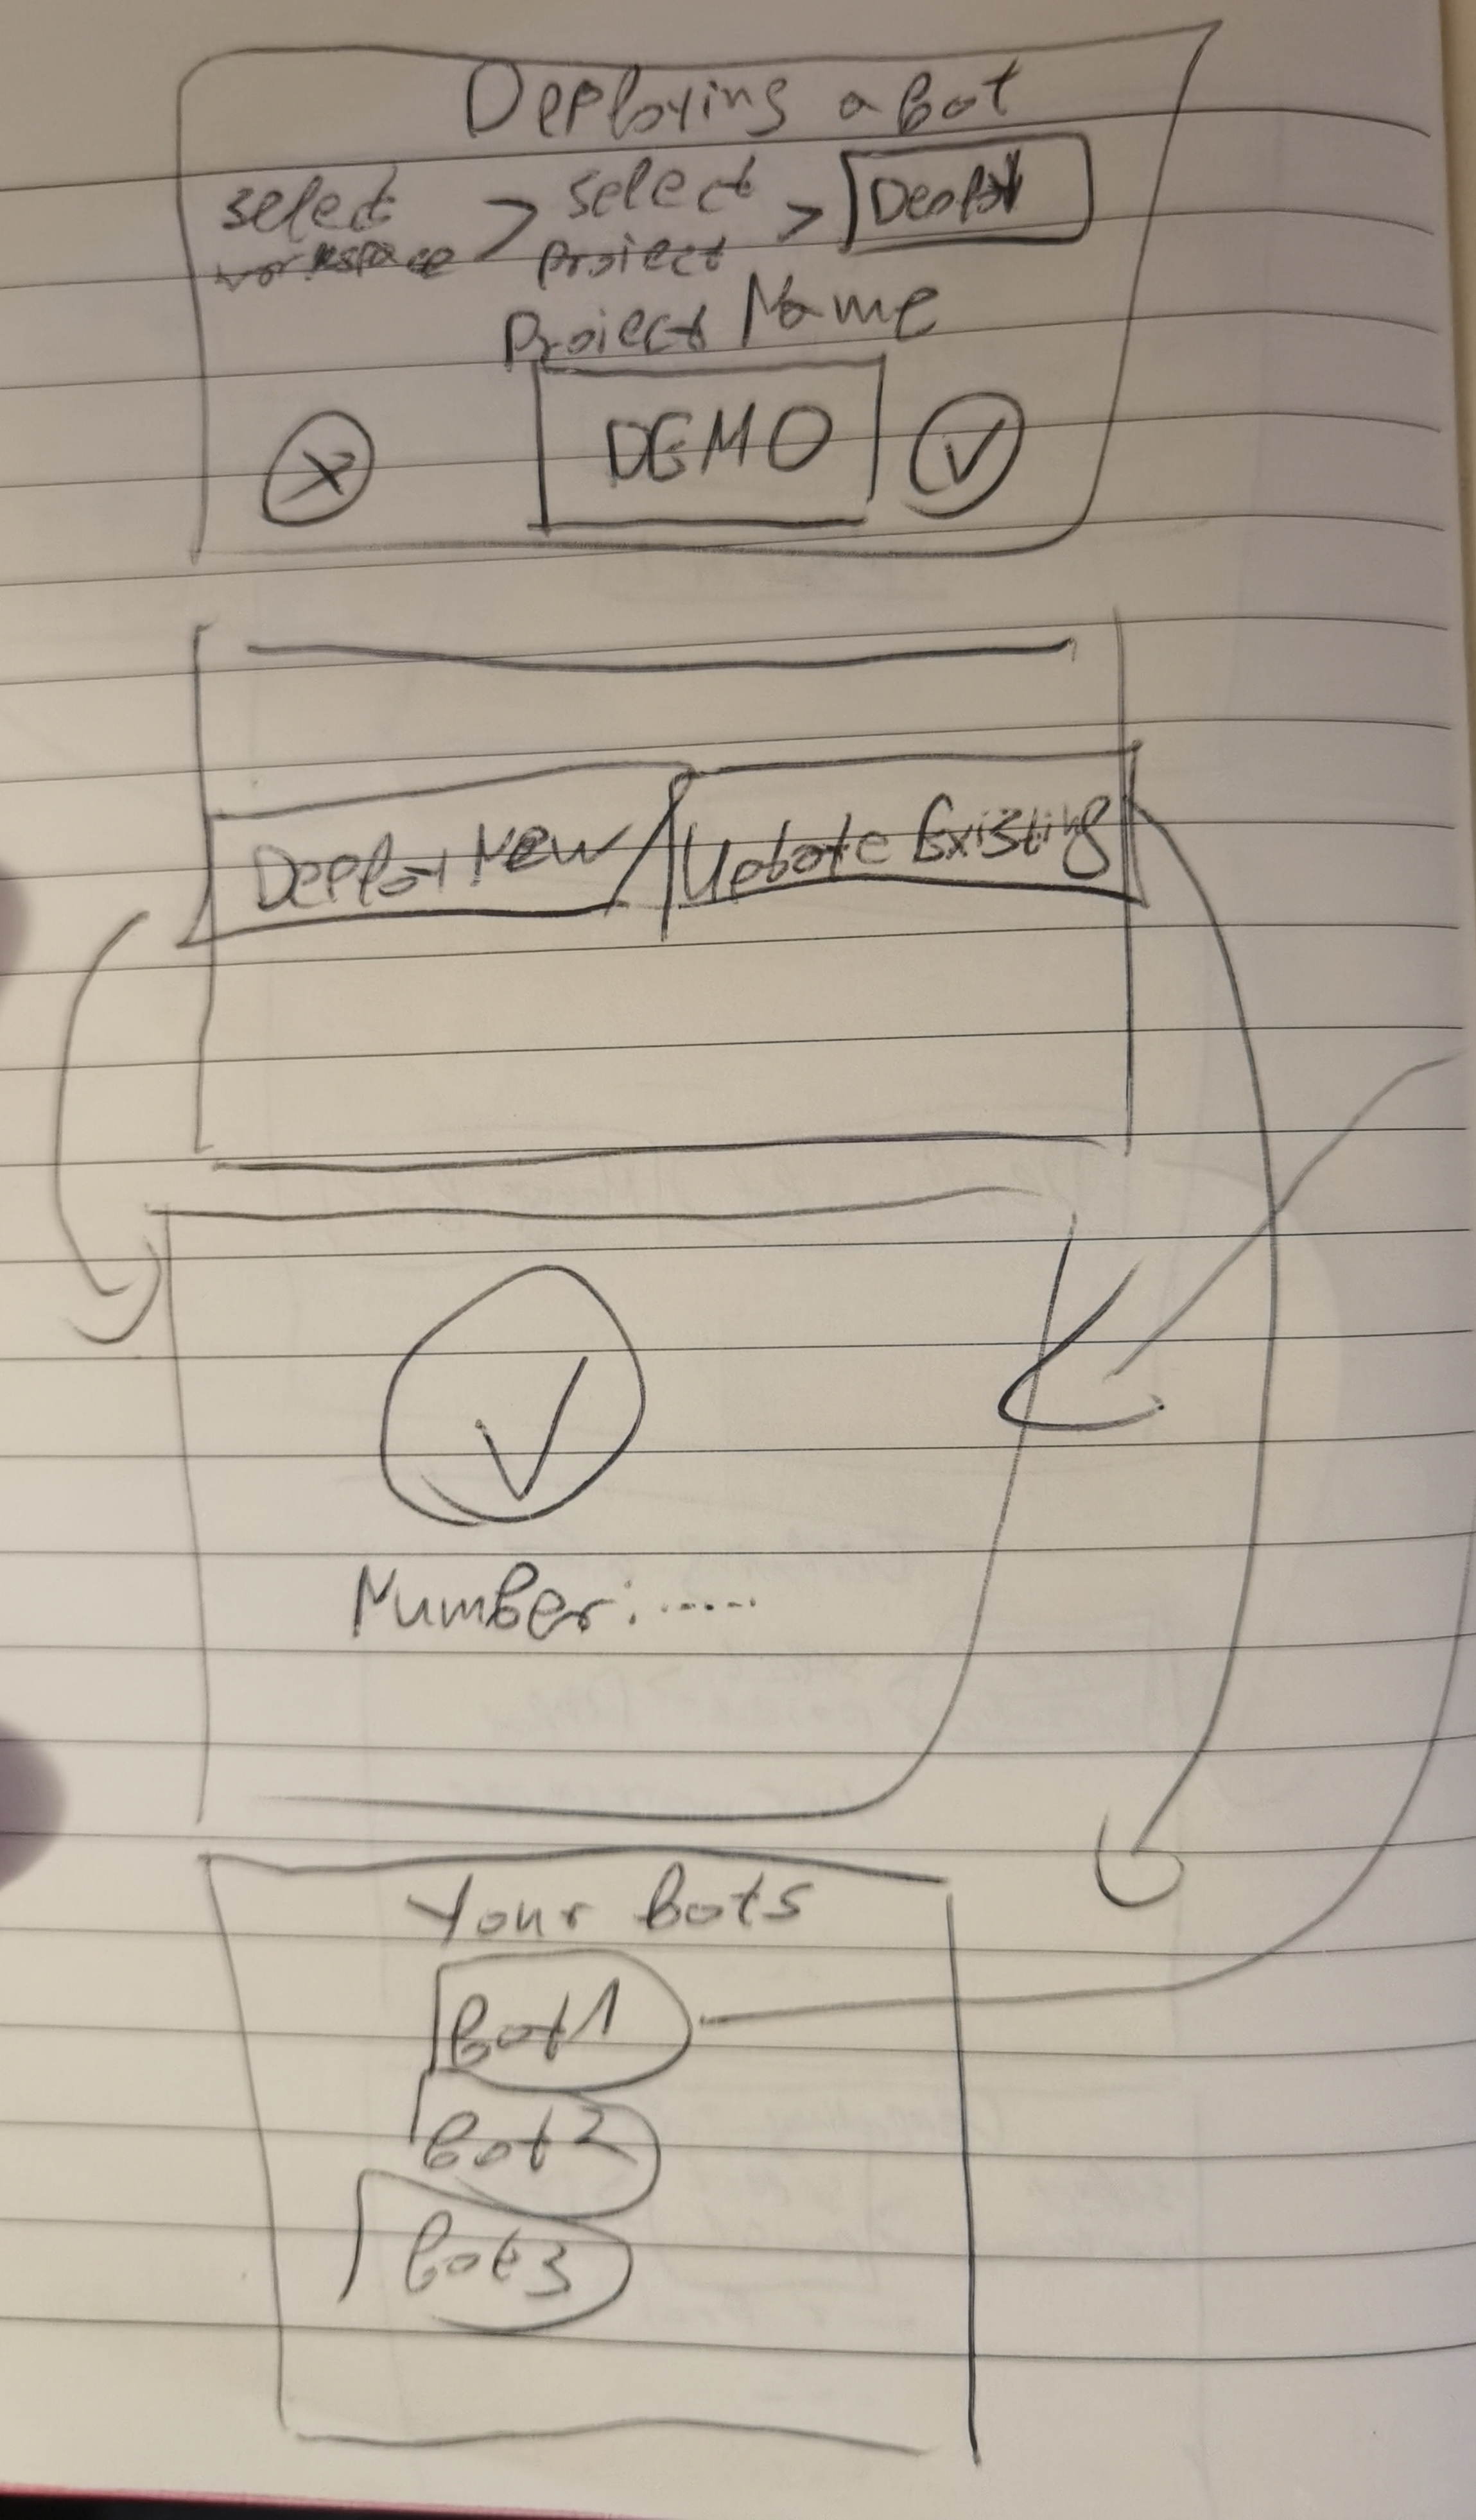 Deploying a bot
select workspace > select project > Deploy
Project Name
X DEMO ✓
Deploy New / Update Existing
✓
Number: .....
Your bots
Bot1
Bot2
Bot3